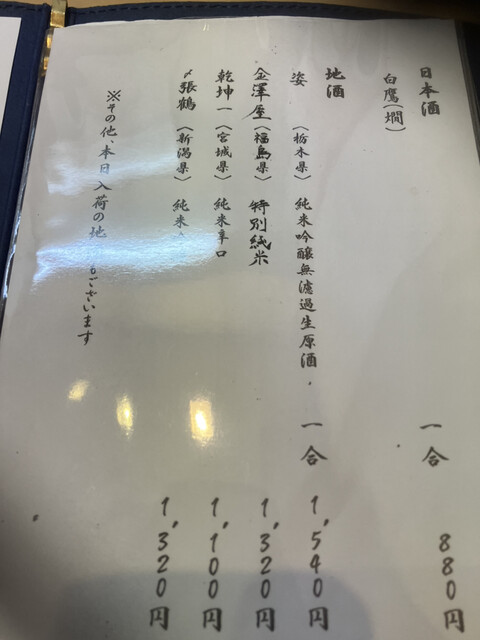 日本酒
白鷹(燗) 一合 880円
地酒
姿 〈栃木県〉 純米吟醸無濾過生原酒 一合 1,540円
金澤屋〈福島県〉 特別純米 1,320円
乾坤一〈宮城県〉 純米辛口 1,100円
〆張鶴〈新潟県〉 純米 1,320円
※その他、本日入荷の地 もございます